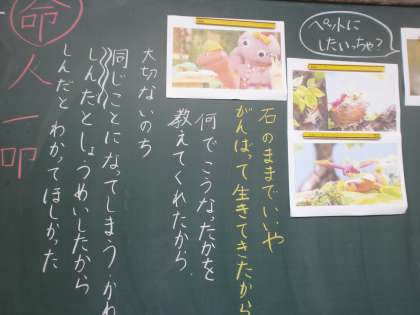 ペットに
したいっちゃ？
石のままでいいや
がんばって生きてきたから
何でこうなったかを
教えてくれたから
大切ないのち
同じことになってしまう かわ
しんだとしょうめいしたから
しんだと わかってほしかった
命
人一叩